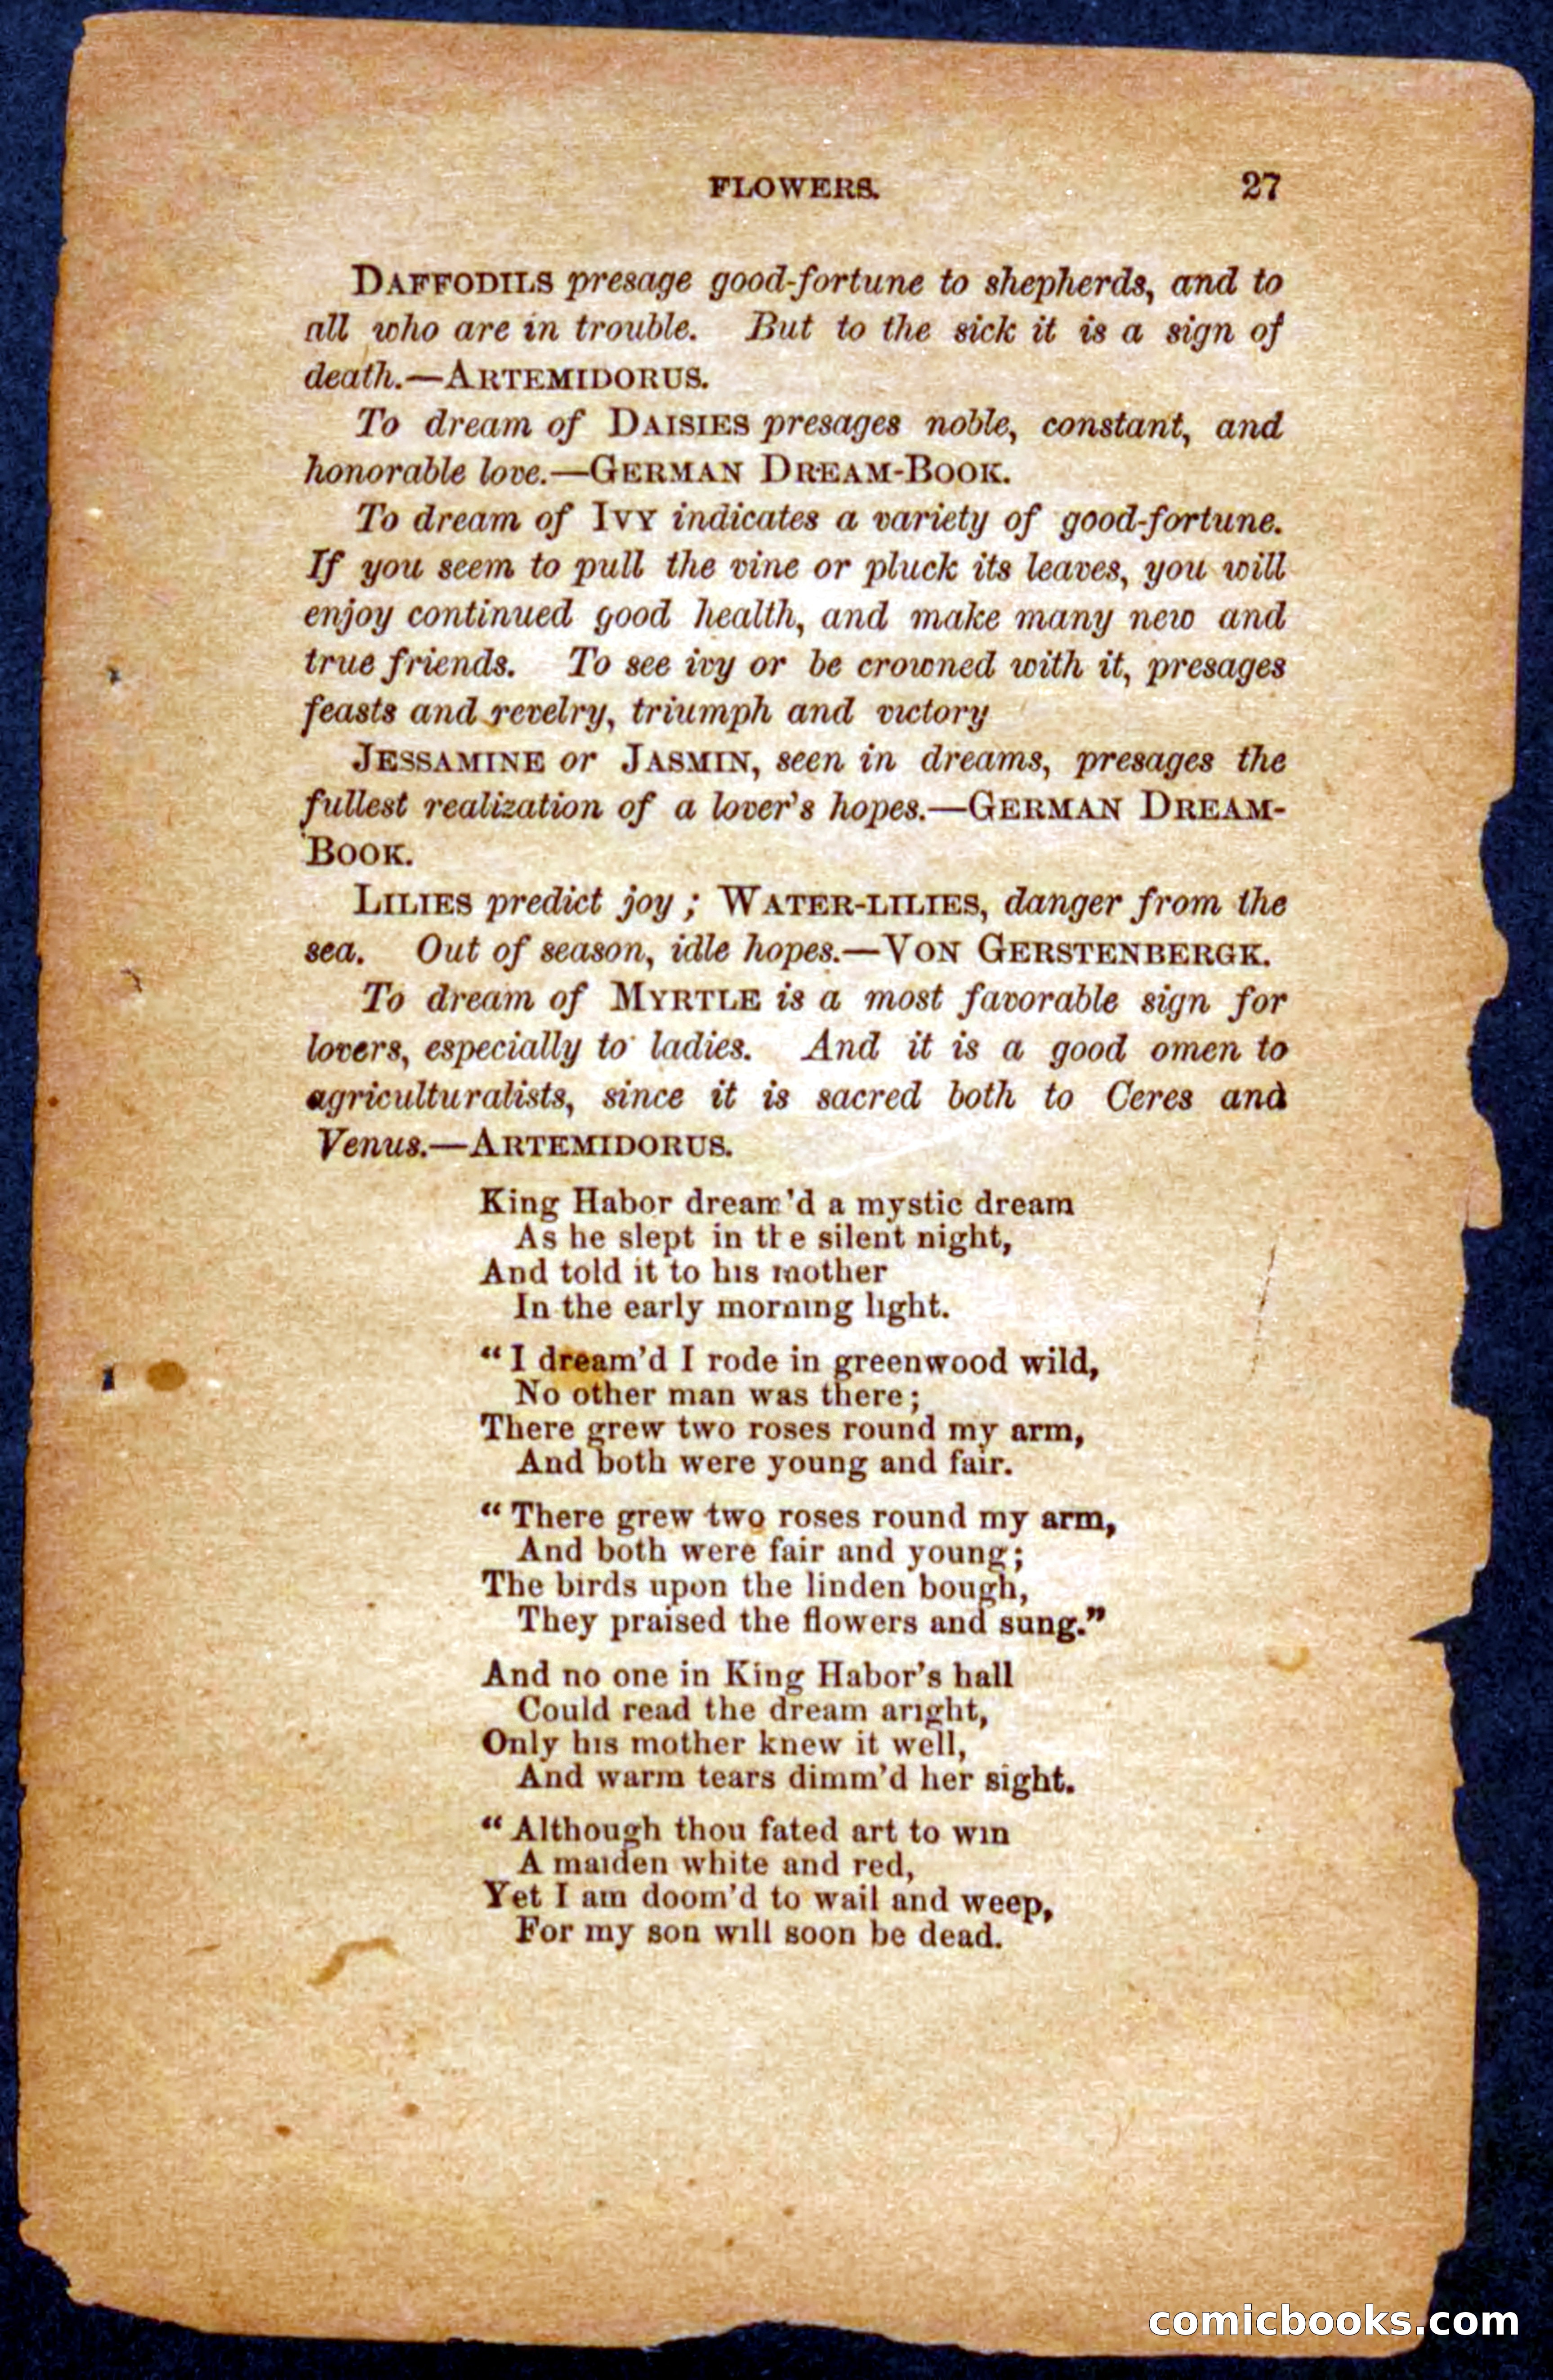 FLOWERS. 27
DAFFODILS presage good-fortune to shepherds, and to
all who are in trouble. But to the sick it is a sign of
death.—ARTEMIDORUS.
To dream of DAISIES presages noble, constant, and
honorable love.—GERMAN DREAM-BOOK.
To dream of IVY indicates a variety of good-fortune.
If you seem to pull the vine or pluck its leaves, you will
enjoy continued good health, and make many new and
true friends. To see ivy or be crowned with it, presages
feasts and revelry, triumph and victory
JESSAMINE or JASMIN, seen in dreams, presages the
fullest realization of a lover's hopes.—GERMAN DREAM-
BOOK.
LILIES predict joy; WATER-LILIES, danger from the
sea. Out of season, idle hopes.—VON GERSTENBERGK.
To dream of MYRTLE is a most favorable sign for
lovers, especially to ladies. And it is a good omen to
agriculturalists, since it is sacred both to Ceres and
Venus.—ARTEMIDORUS.
King Habor dream'd a mystic dream
As he slept in the silent night,
And told it to his mother
In the early morning light.
“I dream'd I rode in greenwood wild,
No other man was there;
There grew two roses round my arm,
And both were young and fair.
“There grew two roses round my arm,
And both were fair and young;
The birds upon the linden bough,
They praised the flowers and sung.”
And no one in King Habor's hall
Could read the dream aright,
Only his mother knew it well,
And warm tears dimm'd her sight.
“Although thou fated art to win
A maiden white and red,
Yet I am doom'd to wail and weep,
For my son will soon be dead.
comicbooks.com